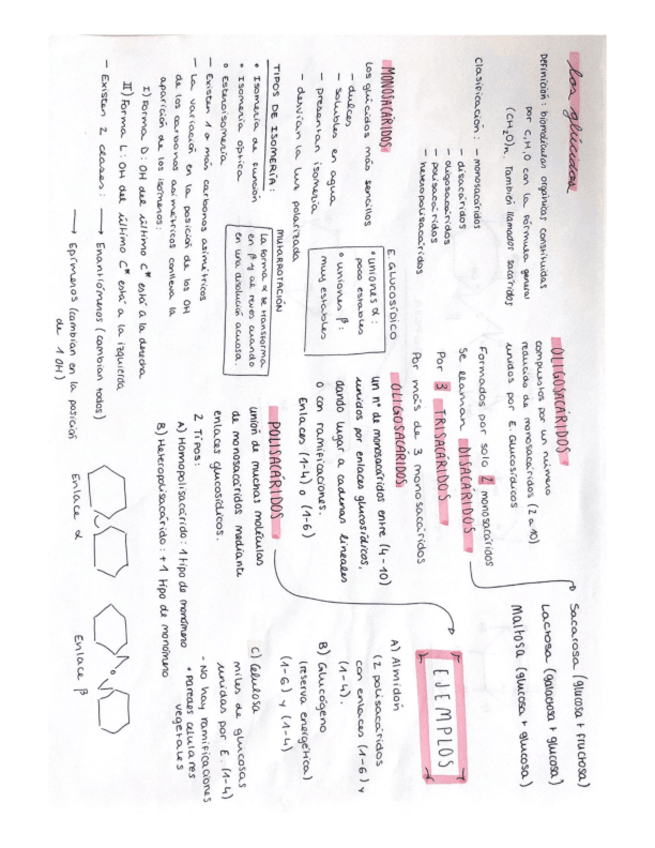 los glúcidos
Definición: biomoléculas orgánicas constituidas
por C,H,O con la fórmula general
(CH₂O)n. También llamados sacáridos
Clasificación: - monosacáridos
- disacáridos
- oligosacáridos
- polisacáridos
- heteropolisacáridos
MONOSACÁRIDOS
Los glúcidos más sencillos
- dulces
- solubles en agua
- presentan isomería
- desvían la luz polarizada
E. GLUCOSÍDICO
• uniones α:
poco estables
• uniones β:
muy estables
TIPOS DE ISOMERÍA:
• Isomería de función
• Isomería óptica
• Esteroisomería
MUTARROTACIÓN
La forma α se transforma
en β y al revés cuando
en una disolución acuosa.
- Existen 1 o más carbonos asimétricos
- La variación en la posición de los OH
de los carbonos asimétricos conlleva la
aparición de los isómeros:
I) Forma D: OH del último C* está a la derecha
II) Forma L: OH del último C* está a la izquierda
- Existen 2 clases: → Enantiómenos (cambian todos)
→ Epímenos (cambian en la posición
de 1 OH)
OLIGOSACÁRIDOS
compuestos por un número
reducido de monosacáridos (2 a 10)
unidos por E. Glucosídicos
Formados por solo 2 monosacáridos
se llaman DISACÁRIDOS
Por 3 TRISACÁRIDOS
Por más de 3 monosacáridos
OLIGOSACÁRIDOS
un nº de monosacáridos entre (4-10)
unidos por enlaces glucosídicos,
dando lugar a cadenas lineales
o con ramificaciones.
Enlaces (1-4) o (1-6)
POLISACÁRIDOS
unión de muchas moléculas
de monosacáridos mediante
enlaces glucosídicos.
2 Tipos:
A) Homopolisacárido: 1 tipo de monómeno
B) Heteropolisacárido: +1 tipo de monómeno
Enlace α
Enlace β
O
Sacarosa (glucosa + fructosa)
Lactosa (galactosa + glucosa)
Maltosa (glucosa + glucosa)
EJEMPLOS
A) Almidón
(2 polisacáridos
con enlaces (1-6) y
(1-4).
B) Glucógeno
(reserva energética)
(1-6) y (1-4)
C) Celulosa
miles de glucosas
unidas por E. (1-4)
- No hay ramificaciones
• paredes celulares
vegetales